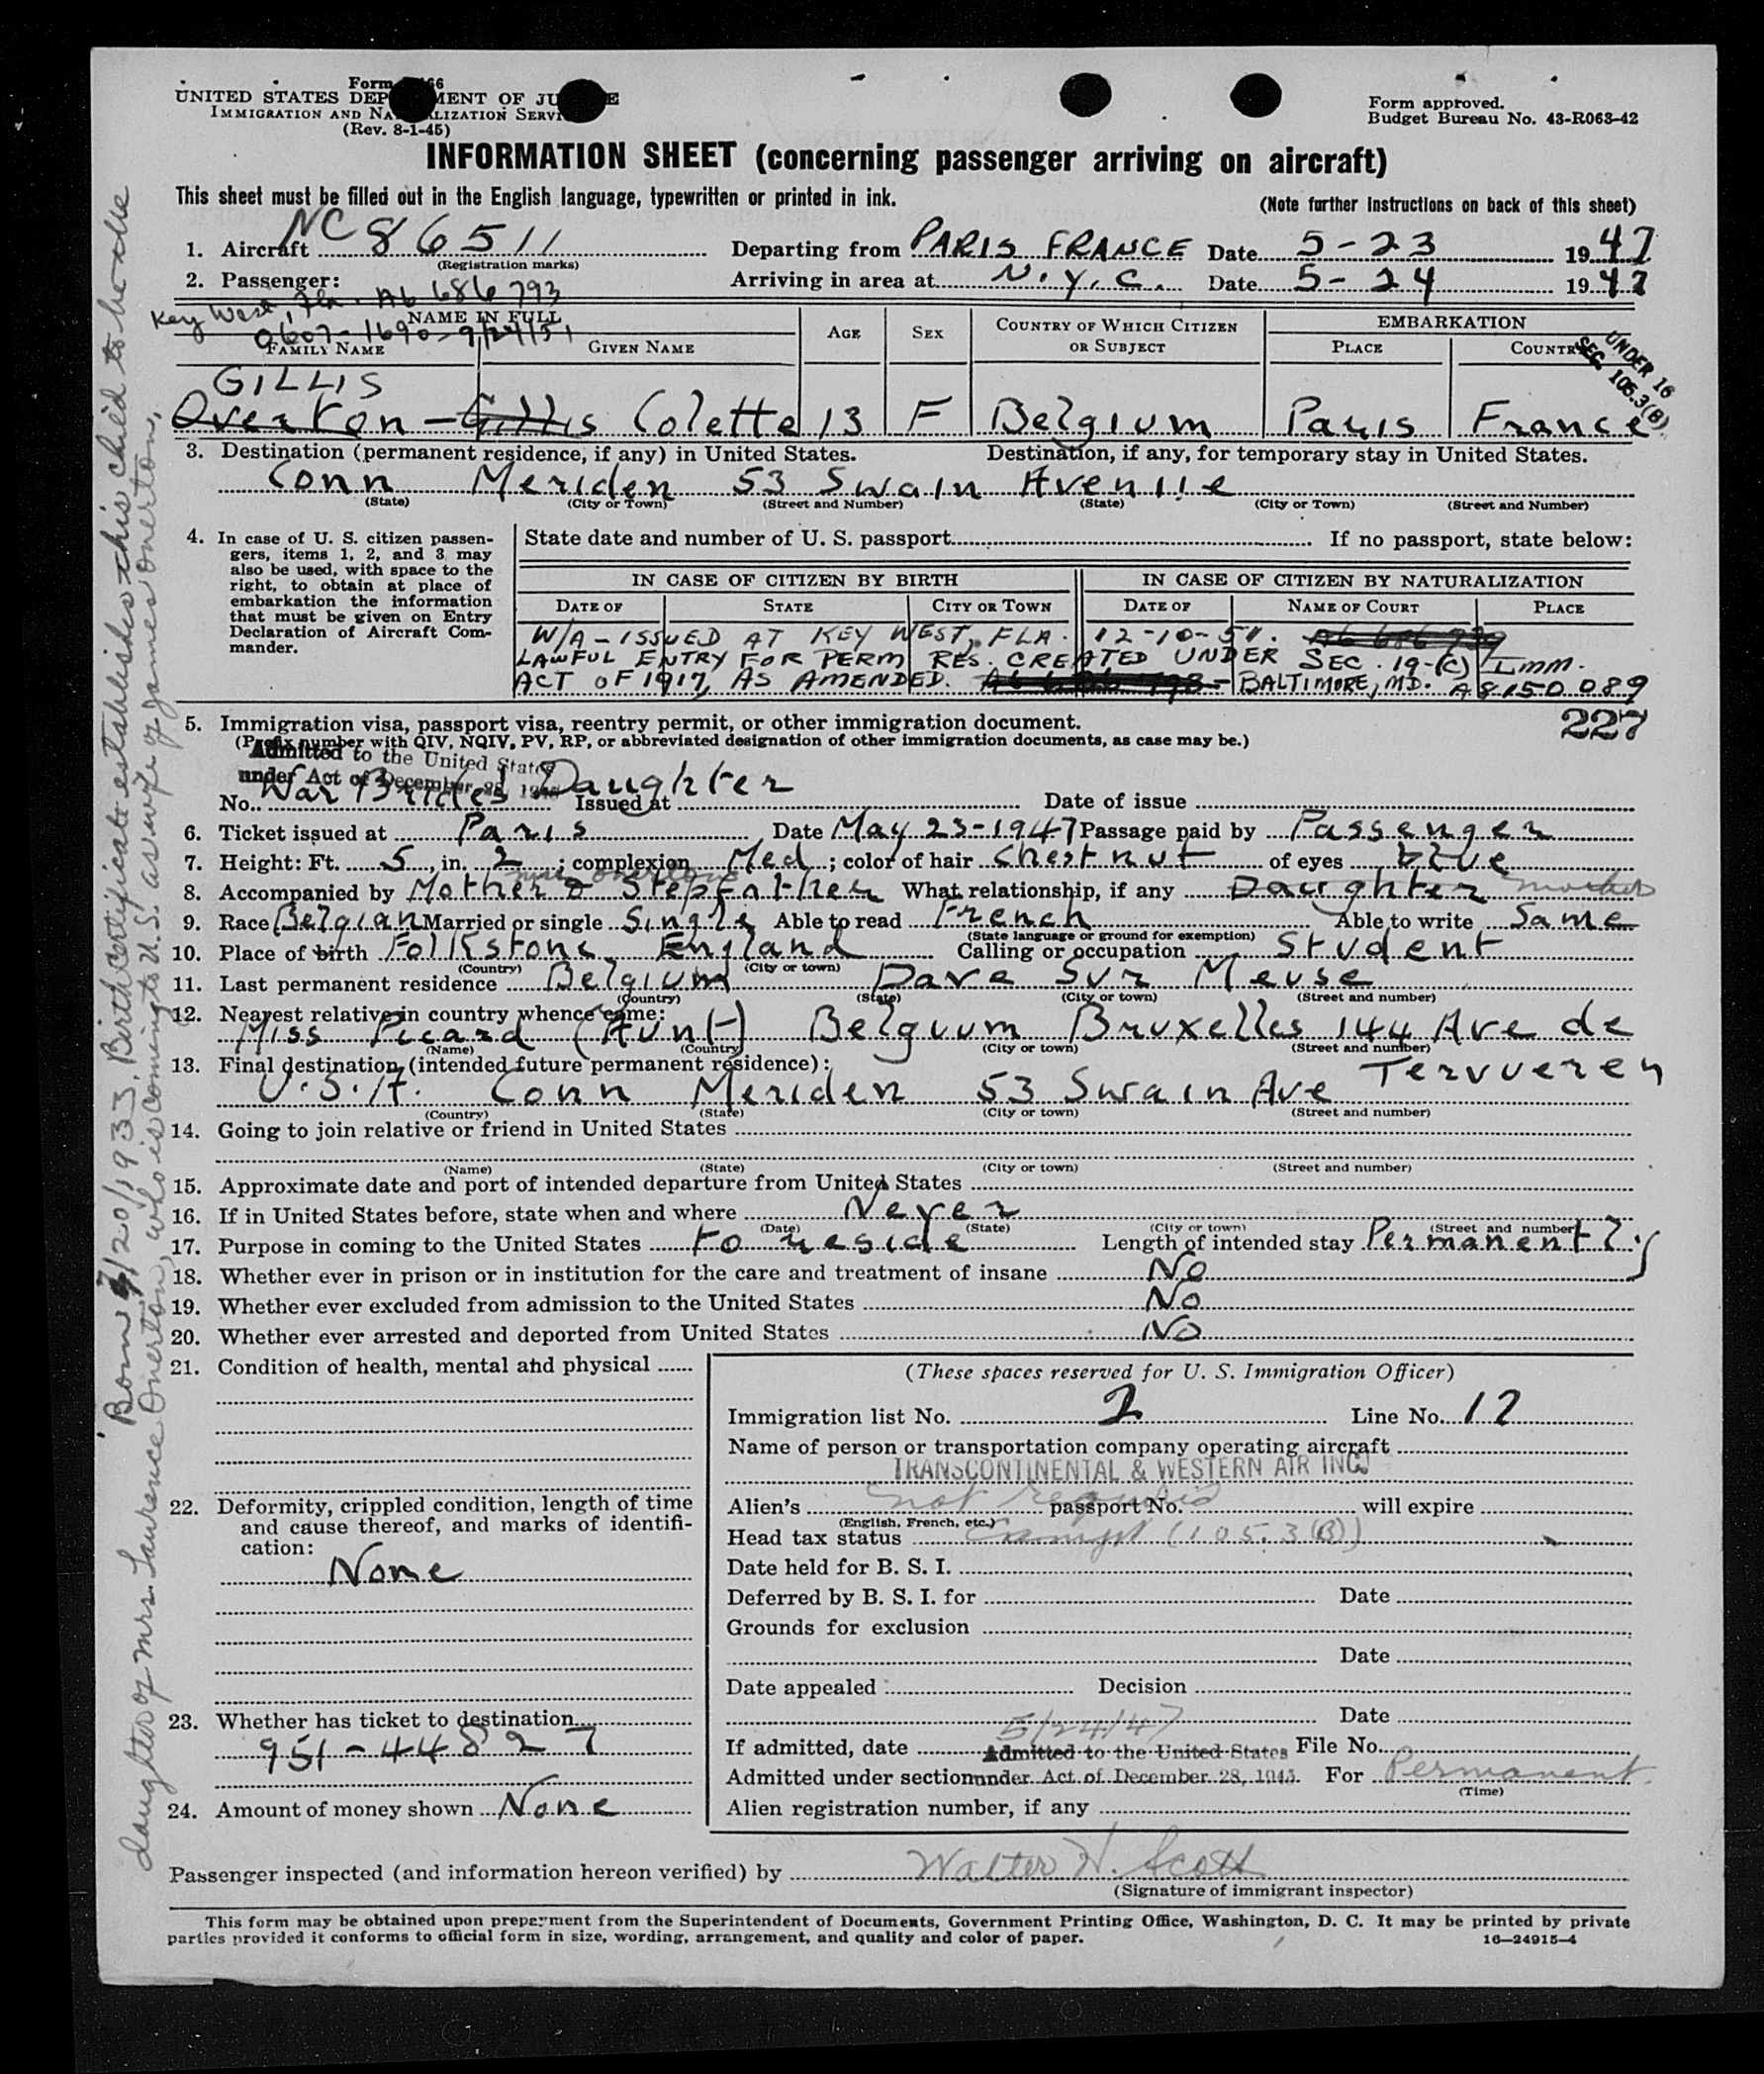 UNITED STATES DEP MENT OF JU E
IMMIGRATION AND NA LIZATION SERVI
(Rev. 8-1-45)
Form approved.
Budget Bureau No. 43-R063-42
INFORMATION SHEET (concerning passenger arriving on aircraft)
This sheet must be filled out in the English language, typewritten or printed in ink.
(Note further instructions on back of this sheet)
1. Aircraft NC 86511 Departing from PARIS FRANCE Date 5-23 1947
(Registration marks)
2. Passenger: Arriving in area at N.Y.C. Date 5-24 1947
Key West, Fla. A6 686 793
0607-1690-9/24/51
NAME IN FULL AGE SEX COUNTRY OF WHICH CITIZEN OR SUBJECT EMBARKATION
FAMILY NAME GIVEN NAME PLACE COUNTRY
UNDER 16
SEC. 105.3(B)
GILLIS
Overton - Gillis Colette 13 F Belgium Paris France
3. Destination (permanent residence, if any) in United States. Destination, if any, for temporary stay in United States.
Conn Meriden 53 Swain Avenue
(State) (City or Town) (Street and Number) (State) (City or Town) (Street and Number)
4. In case of U. S. citizen passen-
gers, items 1, 2, and 3 may
also be used, with space to the
right, to obtain at place of
embarkation the information
that must be given on Entry
Declaration of Aircraft Com-
mander.
State date and number of U. S. passport If no passport, state below:
IN CASE OF CITIZEN BY BIRTH IN CASE OF CITIZEN BY NATURALIZATION
DATE OF STATE CITY OR TOWN DATE OF NAME OF COURT PLACE
W/A - ISSUED AT KEY WEST, FLA. 12-10-51.
LAWFUL ENTRY FOR PERM RES. CREATED UNDER SEC. 19-(C) IMM.
ACT OF 1917, AS AMENDED. BALTIMORE, MD. A8 150 089
227
5. Immigration visa, passport visa, reentry permit, or other immigration document.
(Prefix number with QIV, NQIV, PV, RP, or abbreviated designation of other immigration documents, as case may be.)
Admitted to the United States
under Act of December 28, 1945
No. War Bride's Daughter Issued at Date of issue
6. Ticket issued at Paris Date May 23-1947 Passage paid by Passenger
7. Height: Ft. 5, in. 2; complexion Med; color of hair chestnut of eyes blue
8. Accompanied by Mother & Stepfather What relationship, if any Daughter mother
9. Race Belgian Married or single Single Able to read French Able to write Same
(State language or ground for exemption)
10. Place of birth Folkstone England Calling or occupation Student
(Country) (City or town)
11. Last permanent residence Belgium Dave Sur Meuse
(Country) (State) (City or town) (Street and number)
12. Nearest relative in country whence came:
Miss Picard (Aunt) Belgium Bruxelles 144 Ave de
Tervueren
(Name) (Country) (City or town) (Street and number)
13. Final destination (intended future permanent residence):
U.S.A. Conn Meriden 53 Swain Ave
(Country) (State) (City or town) (Street and number)
14. Going to join relative or friend in United States
(Name) (State) (City or town) (Street and number)
15. Approximate date and port of intended departure from United States
16. If in United States before, state when and where Never
(Date) (State) (City or town) (Street and number)
17. Purpose in coming to the United States to reside Length of intended stay Permanently
18. Whether ever in prison or in institution for the care and treatment of insane No
19. Whether ever excluded from admission to the United States No
20. Whether ever arrested and deported from United States No
21. Condition of health, mental and physical
22. Deformity, crippled condition, length of time
and cause thereof, and marks of identifi-
cation:
None
23. Whether has ticket to destination
951-44827
24. Amount of money shown None
(These spaces reserved for U. S. Immigration Officer)
Immigration list No. 2 Line No. 12
Name of person or transportation company operating aircraft
TRANSCONTINENTAL & WESTERN AIR INC.
Alien's not required passport No. will expire
(English, French, etc.)
Head tax status Exempt (105.3(B))
Date held for B. S. I.
Deferred by B. S. I. for Date
Grounds for exclusion
Date
Date appealed Decision
Date
If admitted, date 5/24/47 File No.
Admitted to the United States
Admitted under section under Act of December 28, 1945. For Permanent
(Time)
Alien registration number, if any
Passenger inspected (and information hereon verified) by Walter H. Scott
(Signature of immigrant inspector)
This form may be obtained upon prepayment from the Superintendent of Documents, Government Printing Office, Washington, D. C. It may be printed by private
parties provided it conforms to official form in size, wording, arrangement, and quality and color of paper. 16—24915-4
Born 7/20/1933. Birth certificate establishes this child to be the
daughter of Mrs. Laurence Overton, who is coming to U.S. as wife of James Overton.